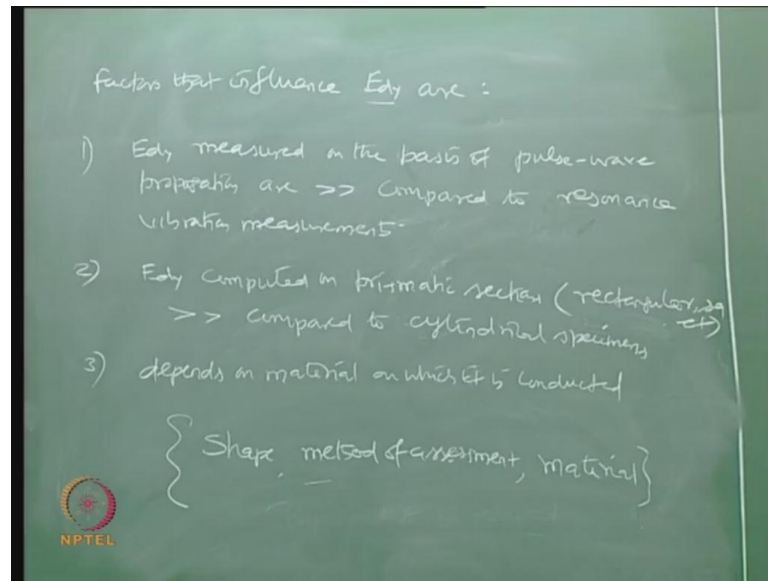 factors that influence Edy are :
1) Edy measured on the basis of pulse-wave
propagation are >> compared to resonance
vibration measurements.
2) Edy computed on prismatic section (rectangular, sq
etc)
>> compared to cylindrical specimens
3) depends on material on which it is conducted
{ Shape, method of assessment, material }
NPTEL